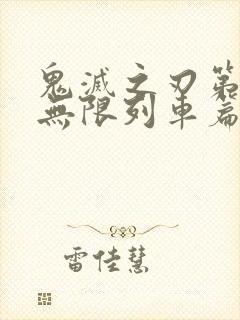 鬼滅之刃第
無限列車篇
雷佳慧